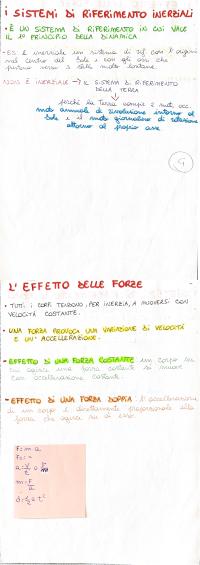 I SISTEMI DI RIFERIMENTO INERZIALI
• È UN SISTEMA DI RIFERIMENTO IN CUI VALE
IL 1° PRINCIPIO DELLA DINAMICA
- ES: è inerziale un sistema di rif. con l'origine
nel centro del Sole e con gli assi che
puntano verso 3 stelle molto lontane.
NON È INERZIALE → IL SISTEMA DI RIFERIMENTO
DELLA TERRA
perché la Terra compie 2 mot. acc.
moto annuale di rivoluzione intorno al
Sole e il moto giornaliero di rotazione
attorno al proprio asse
L'EFFETTO DELLE FORZE
• TUTTI I CORPI TENDONO, PER INERZIA, A MUOVERSI CON
VELOCITÀ COSTANTE.
• UNA FORZA PROVOCA UNA VARIAZIONE DI VELOCITÀ
E UN'ACCELERAZIONE.
• EFFETTO DI UNA FORZA COSTANTE: un corpo su
cui agisce una forza costante si muove
con accelerazione costante.
• EFFETTO DI UNA FORZA DOPPIA: l'accelerazione
di un corpo è direttamente proporzionale alla
forza che agisce su di esso.
F = m a
m = F/a